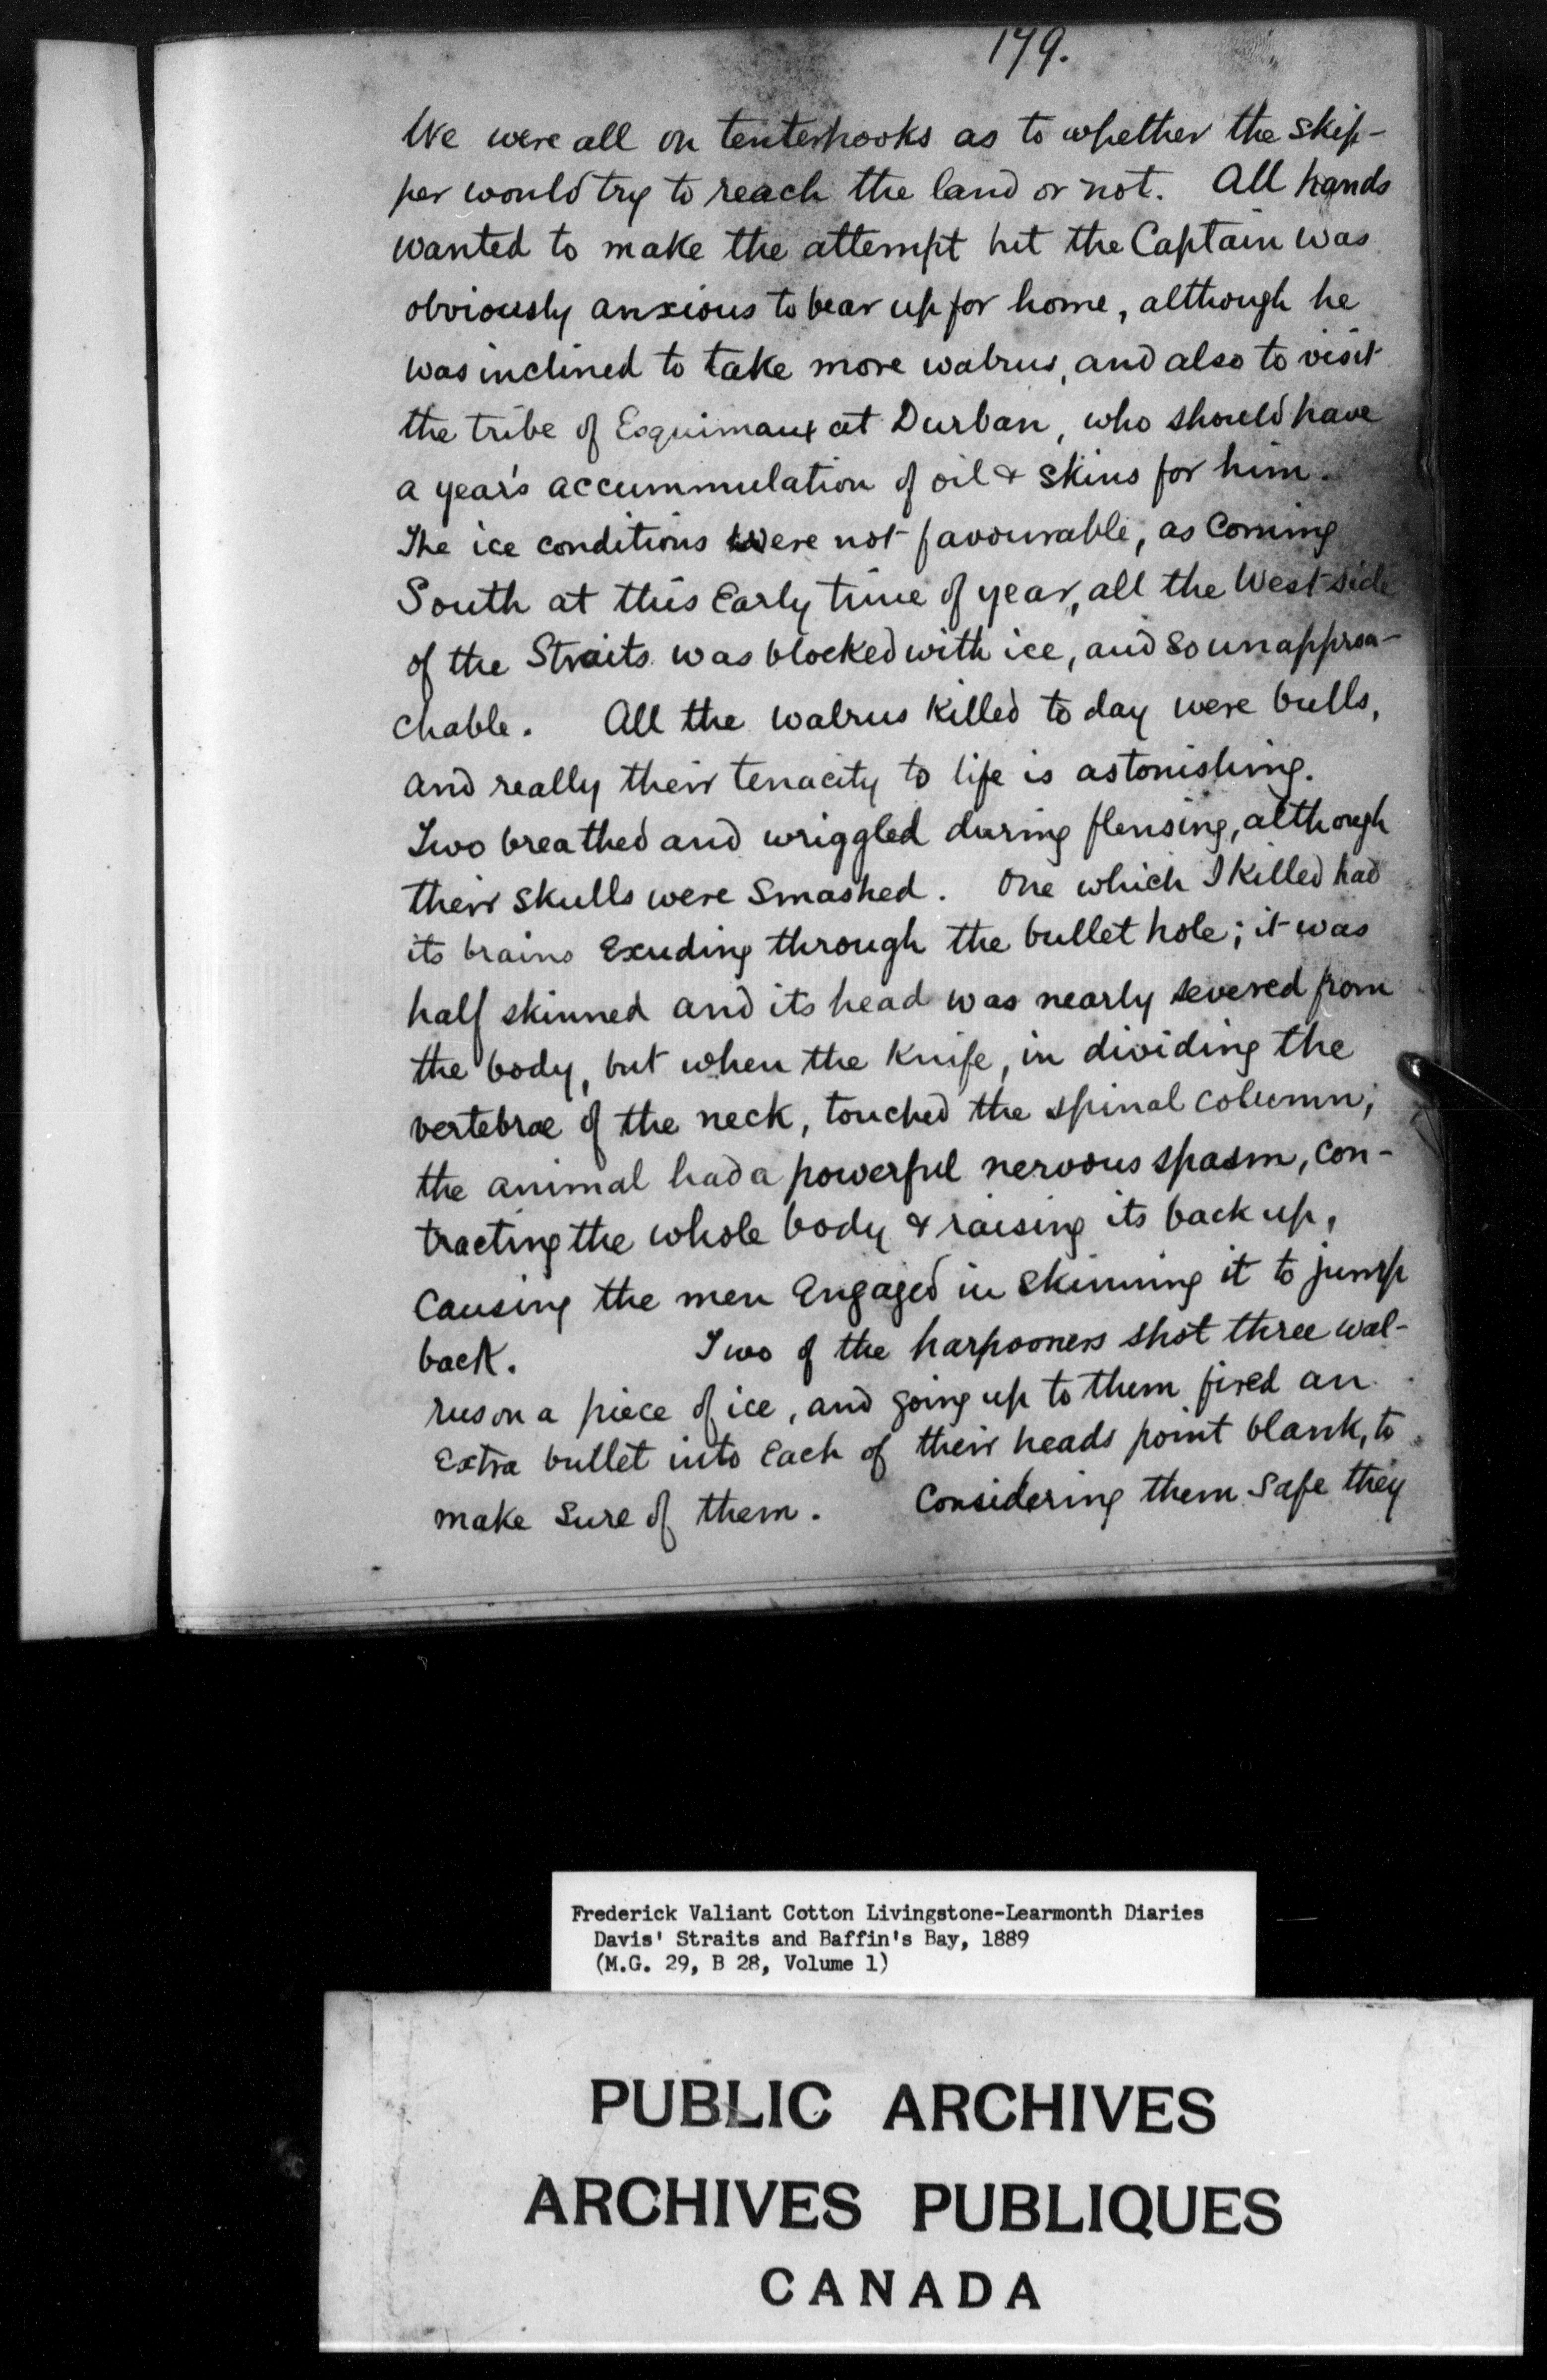 179.
We were all on tenterhooks as to whether the skip-
per would try to reach the land or not. All hands
wanted to make the attempt but the Captain was
obviously anxious to bear up for home, although he
was inclined to take more walrus, and also to visit
the tribe of Esquimaux at Durban, who should have
a year's accummulation of oil & skins for him.
The ice conditions were not favourable, as coming
South at this Early time of year, all the West side
of the Straits was blocked with ice, and so unapproa-
chable. All the walrus killed to day were bulls,
and really their tenacity to life is astonishing.
Two breathed and wriggled during flensing, although
their skulls were smashed. One which I killed had
its brains Exuding through the bullet hole; it was
half skinned and its head was nearly severed from
the body, but when the knife, in dividing the
vertebrae of the neck, touched the spinal column;
the animal had a powerful nervous spasm, con-
tracting the whole body & raising its back up,
causing the men Engaged in skinning it to jump
back. Two of the harpooners shot three wal-
rus on a piece of ice, and going up to them fired an
Extra bullet into Each of their heads point blank, to
make sure of them. Considering them safe they
Frederick Valiant Cotton Livingstone-Learmonth Diaries
Davis' Straits and Baffin's Bay, 1889
(M.G. 29, B 28, Volume 1)
PUBLIC ARCHIVES
ARCHIVES PUBLIQUES
CANADA